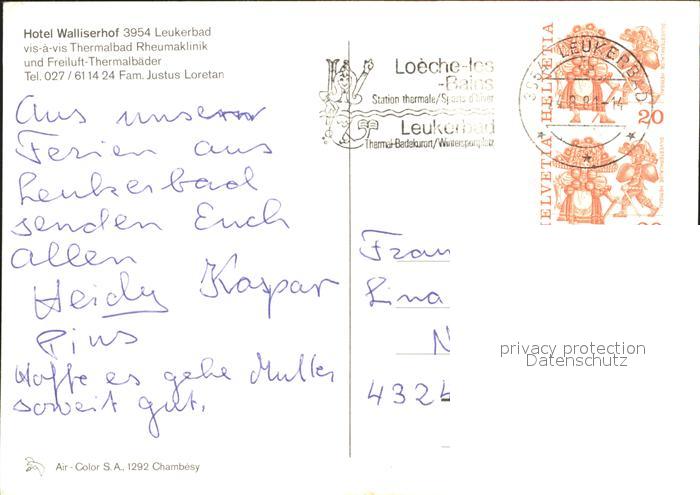 Hotel Walliserhof 3954 Leukerbad
vis-à-vis Thermalbad Rheumaklinik
und Freiluft-Thermalbäder
Tel. 027 / 61 14 24 Fam. Justus Loretan
Aus unserer
Ferien aus
Leukerbad
senden Euch
allen
Heidy Kaspar
Pius
Hoffe es gehe Mutter
soweit gut.
Air - Color S.A., 1292 Chambésy
Loèche-les
-Bains
Station thermale/Sports d'hiver
Leukerbad
Thermal-Badekurort/Wintersportplatz
LEUKERBAD
HELVETIA
20
HELVETIA
Frau
Lina
N
4324
privacy protection
Datenschutz